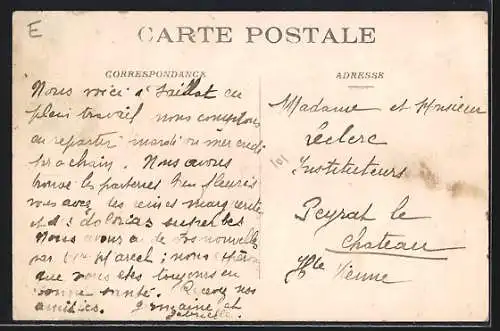 E
CARTE POSTALE
CORRESPONDANCE
Nous voici à Saillat en
plein travail nous comptons
repartir mardi ou mercredi
prochain. Nous avons
trouvé les parterres bien fleuris
vous avez les reines marguerites
et superbes
Nous avons de nouvelles
par nous
que vous êtes toujours en
bonne santé. Recevez nos
amitiés. Germaine et
Gabrielle.
ADRESSE
Madame et Monsieur
Leclerc
Instituteurs
Peyrat le
Chateau
Hte Vienne